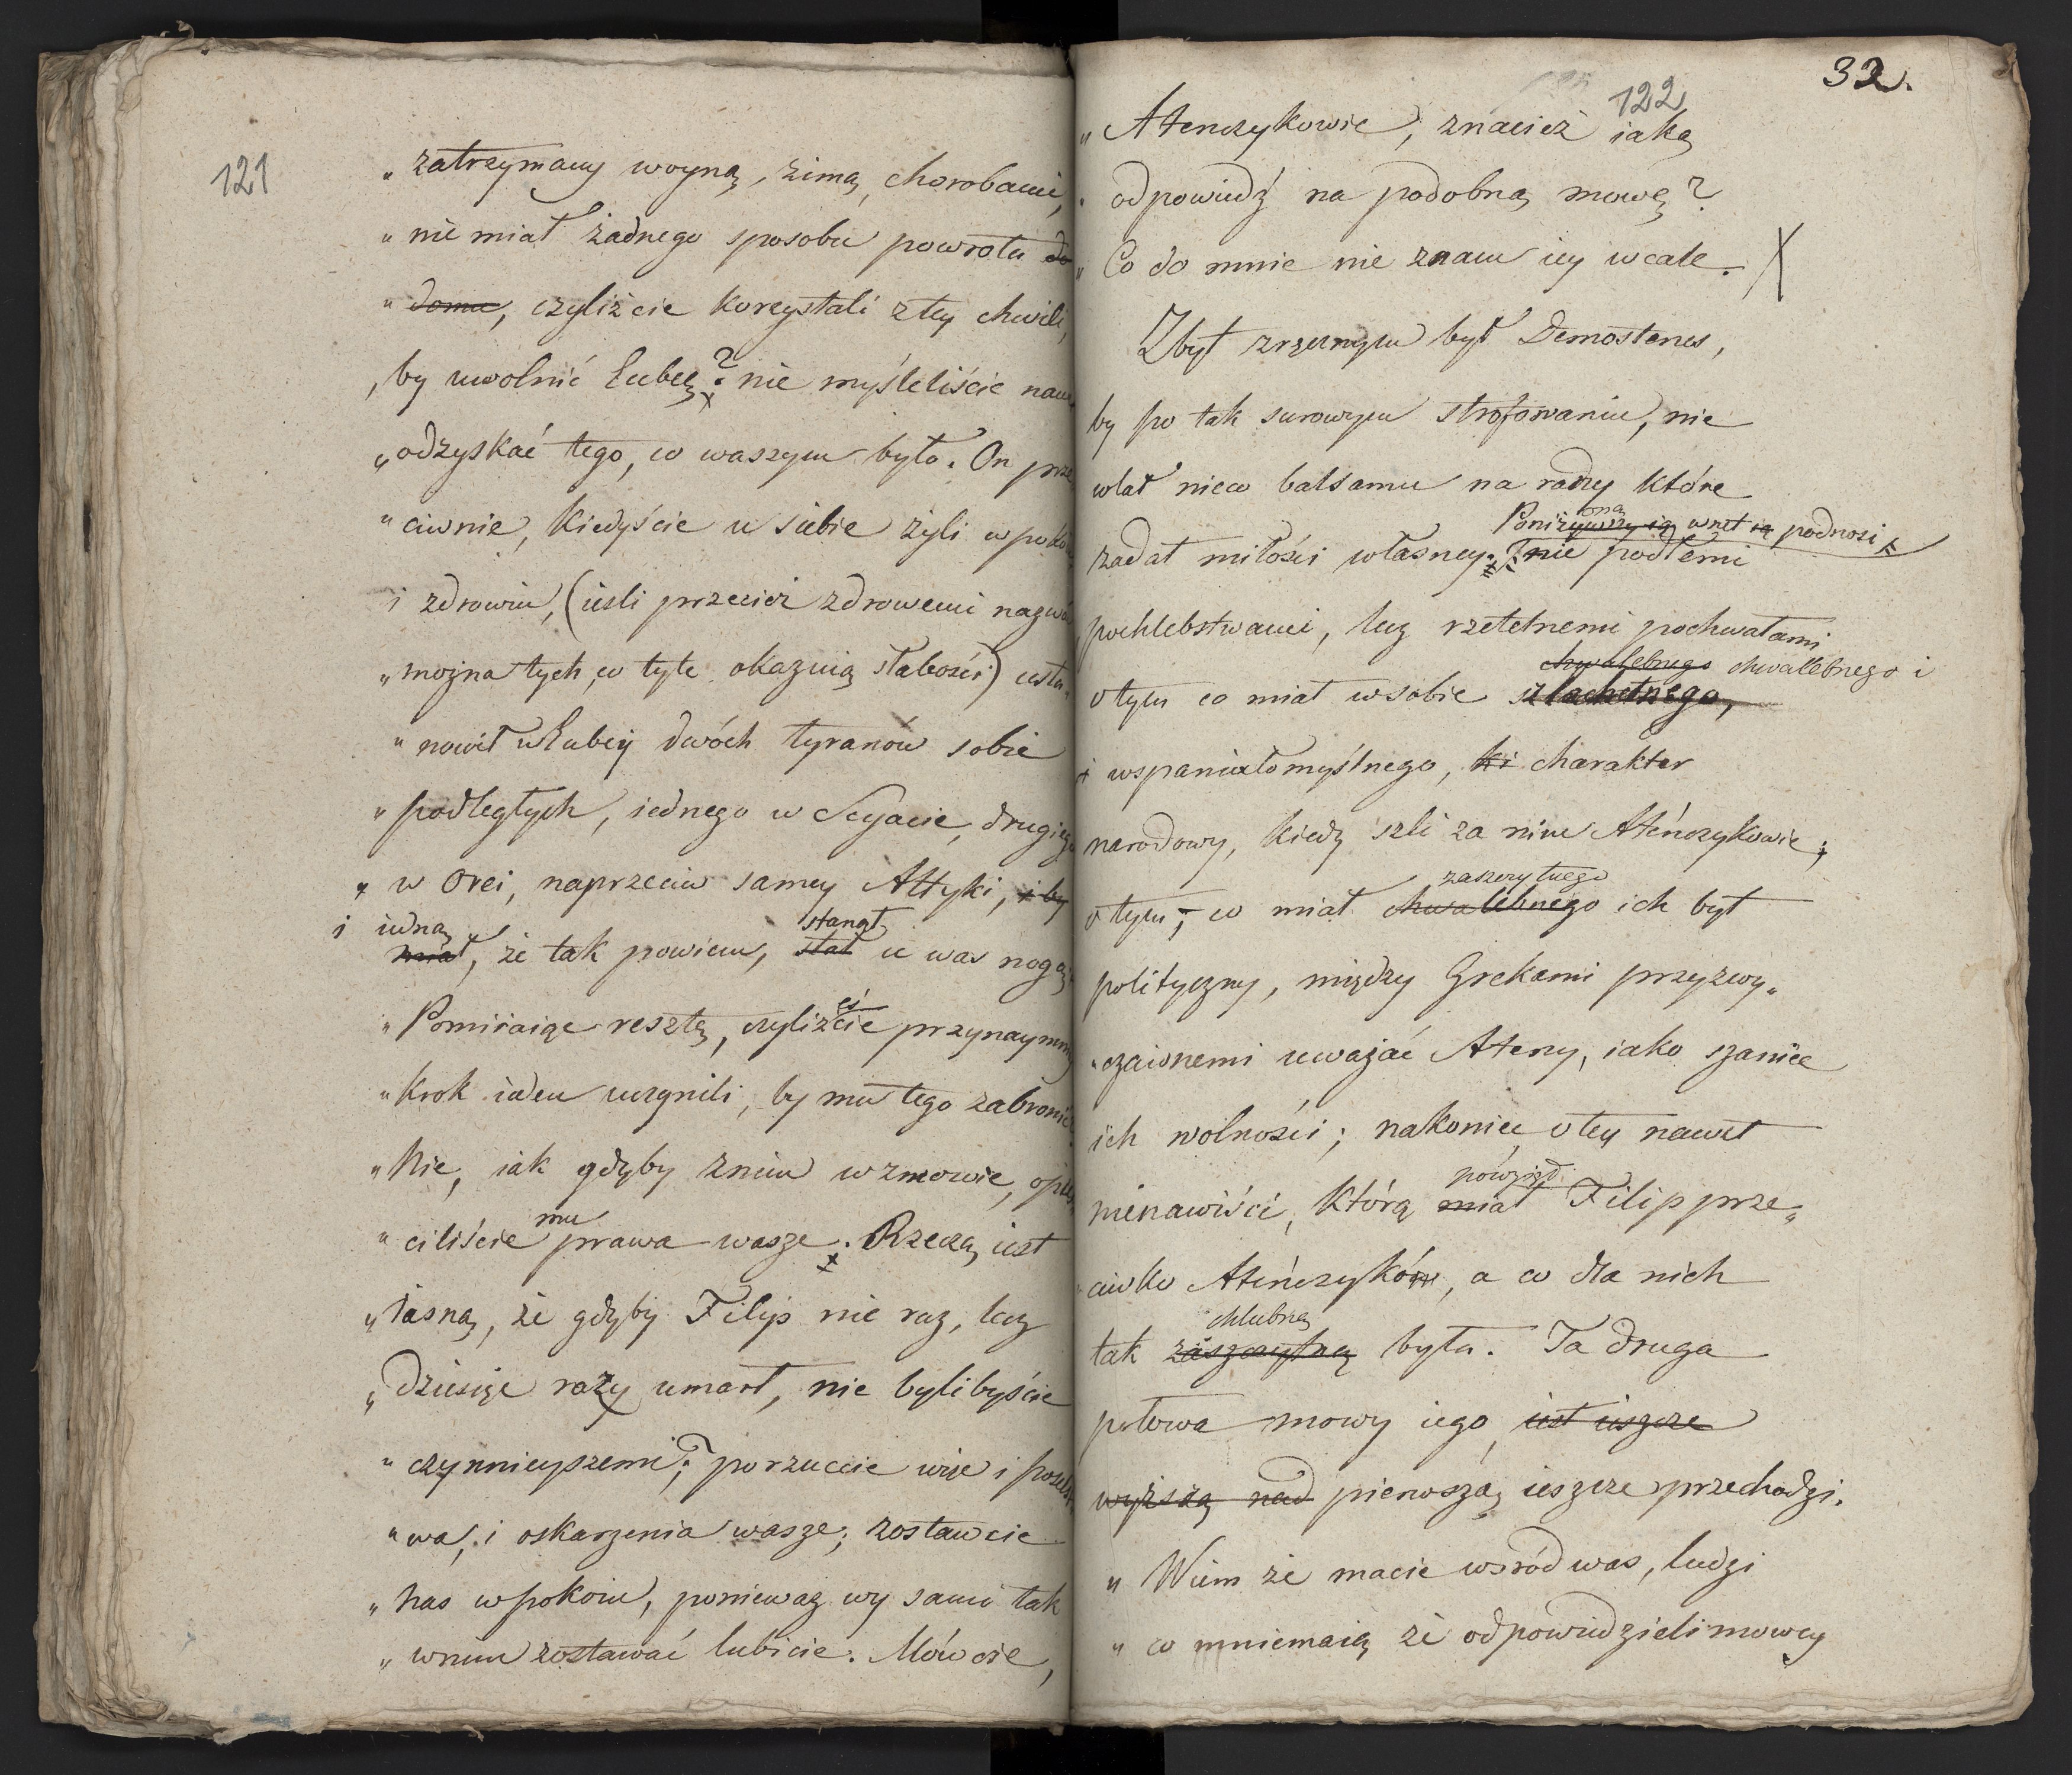 121
„ zatrzymany woyną, zimą, chorobami,
„ nie miał żadnego sposobu powrotu do
„ domu, czyliżcie korzystali z tey chwili,
„ by uwolnić Eubeę? nie myśleliście nawet
„ odzyskać tego, co waszym było. On prze
„ ciwnie, kiedyście u siebie żyli w pokoiu
i zdrowiu, (ieśli przecież zdrowemi nazwać
„ można tych, co tyle okazuią słabości) usta„
„ nowił w Eubei dwóch tyranów sobie
„ podległych, iednego w Scyacie, drugiego
„ w Orei, naprzeciw samey Attyki, i by
i iedną stanął
miał, że tak powiem, stał u was nogą.
„ Pomiiaiąc resztę, czyliżeście przynaymniey
„ krok ieden uczynili, by mu tego zabronić?
„ Nie, iak gdyby z nim w zmowie, opuś
„ ciliście mu prawa wasze. Rzeczą iest
„ iasną, że gdyby Filip nie raz, lecz
„ dziesięć razy umarł, nie bylibyście
„ czynnieyszemi; porzućcie więc i posels
„ wa, i oskarżenia wasze; zostawcie
„ nas w pokoiu, ponieważ wy sami tak
„ w nim zostawać lubicie. Mówcie,
32.
122
„ Atenczykowie, znacież iaką
„ odpowiedź na podobną mowę?
„ Co do mnie nie znam iey wcale. X
Zbyt zręcznym był Demostenes,
by po tak surowym strofowaniu, nie
wlał nieco balsamu na razy które
Poniżywszy ią oną wnet ią podnosi
zadał miłości własney. nie podłemi
pochlebstwami, lecz rzetelnemi pochwałami
chwalebnego chwalebnego i
o tym co miał w sobie szlachetnego,
i wspaniałomyślnego, ki charakter
narodowy, kiedy szli za nim Ateńczykowie;
zaszczytnego
o tym, co miał chwalebnego ich byt
polityczny, między Grekami przyzwy„
„ czaionemi uważać Ateny, iako szaniec
ich wolności; nakoniec o tey nawet
powziął
nienawiści, którą miał Filip prze„
ciwko Ateńczyków, a co dla nich
chlubną
tak zaszczytną była. Ta druga
połowa mowy iego, iest ieszcze
wyższą nad pierwszą, ieszcze przechodzi.
„ Wiem że macie wśród was, ludzi
„ co mniemaią że odpowiedzieli mowcy